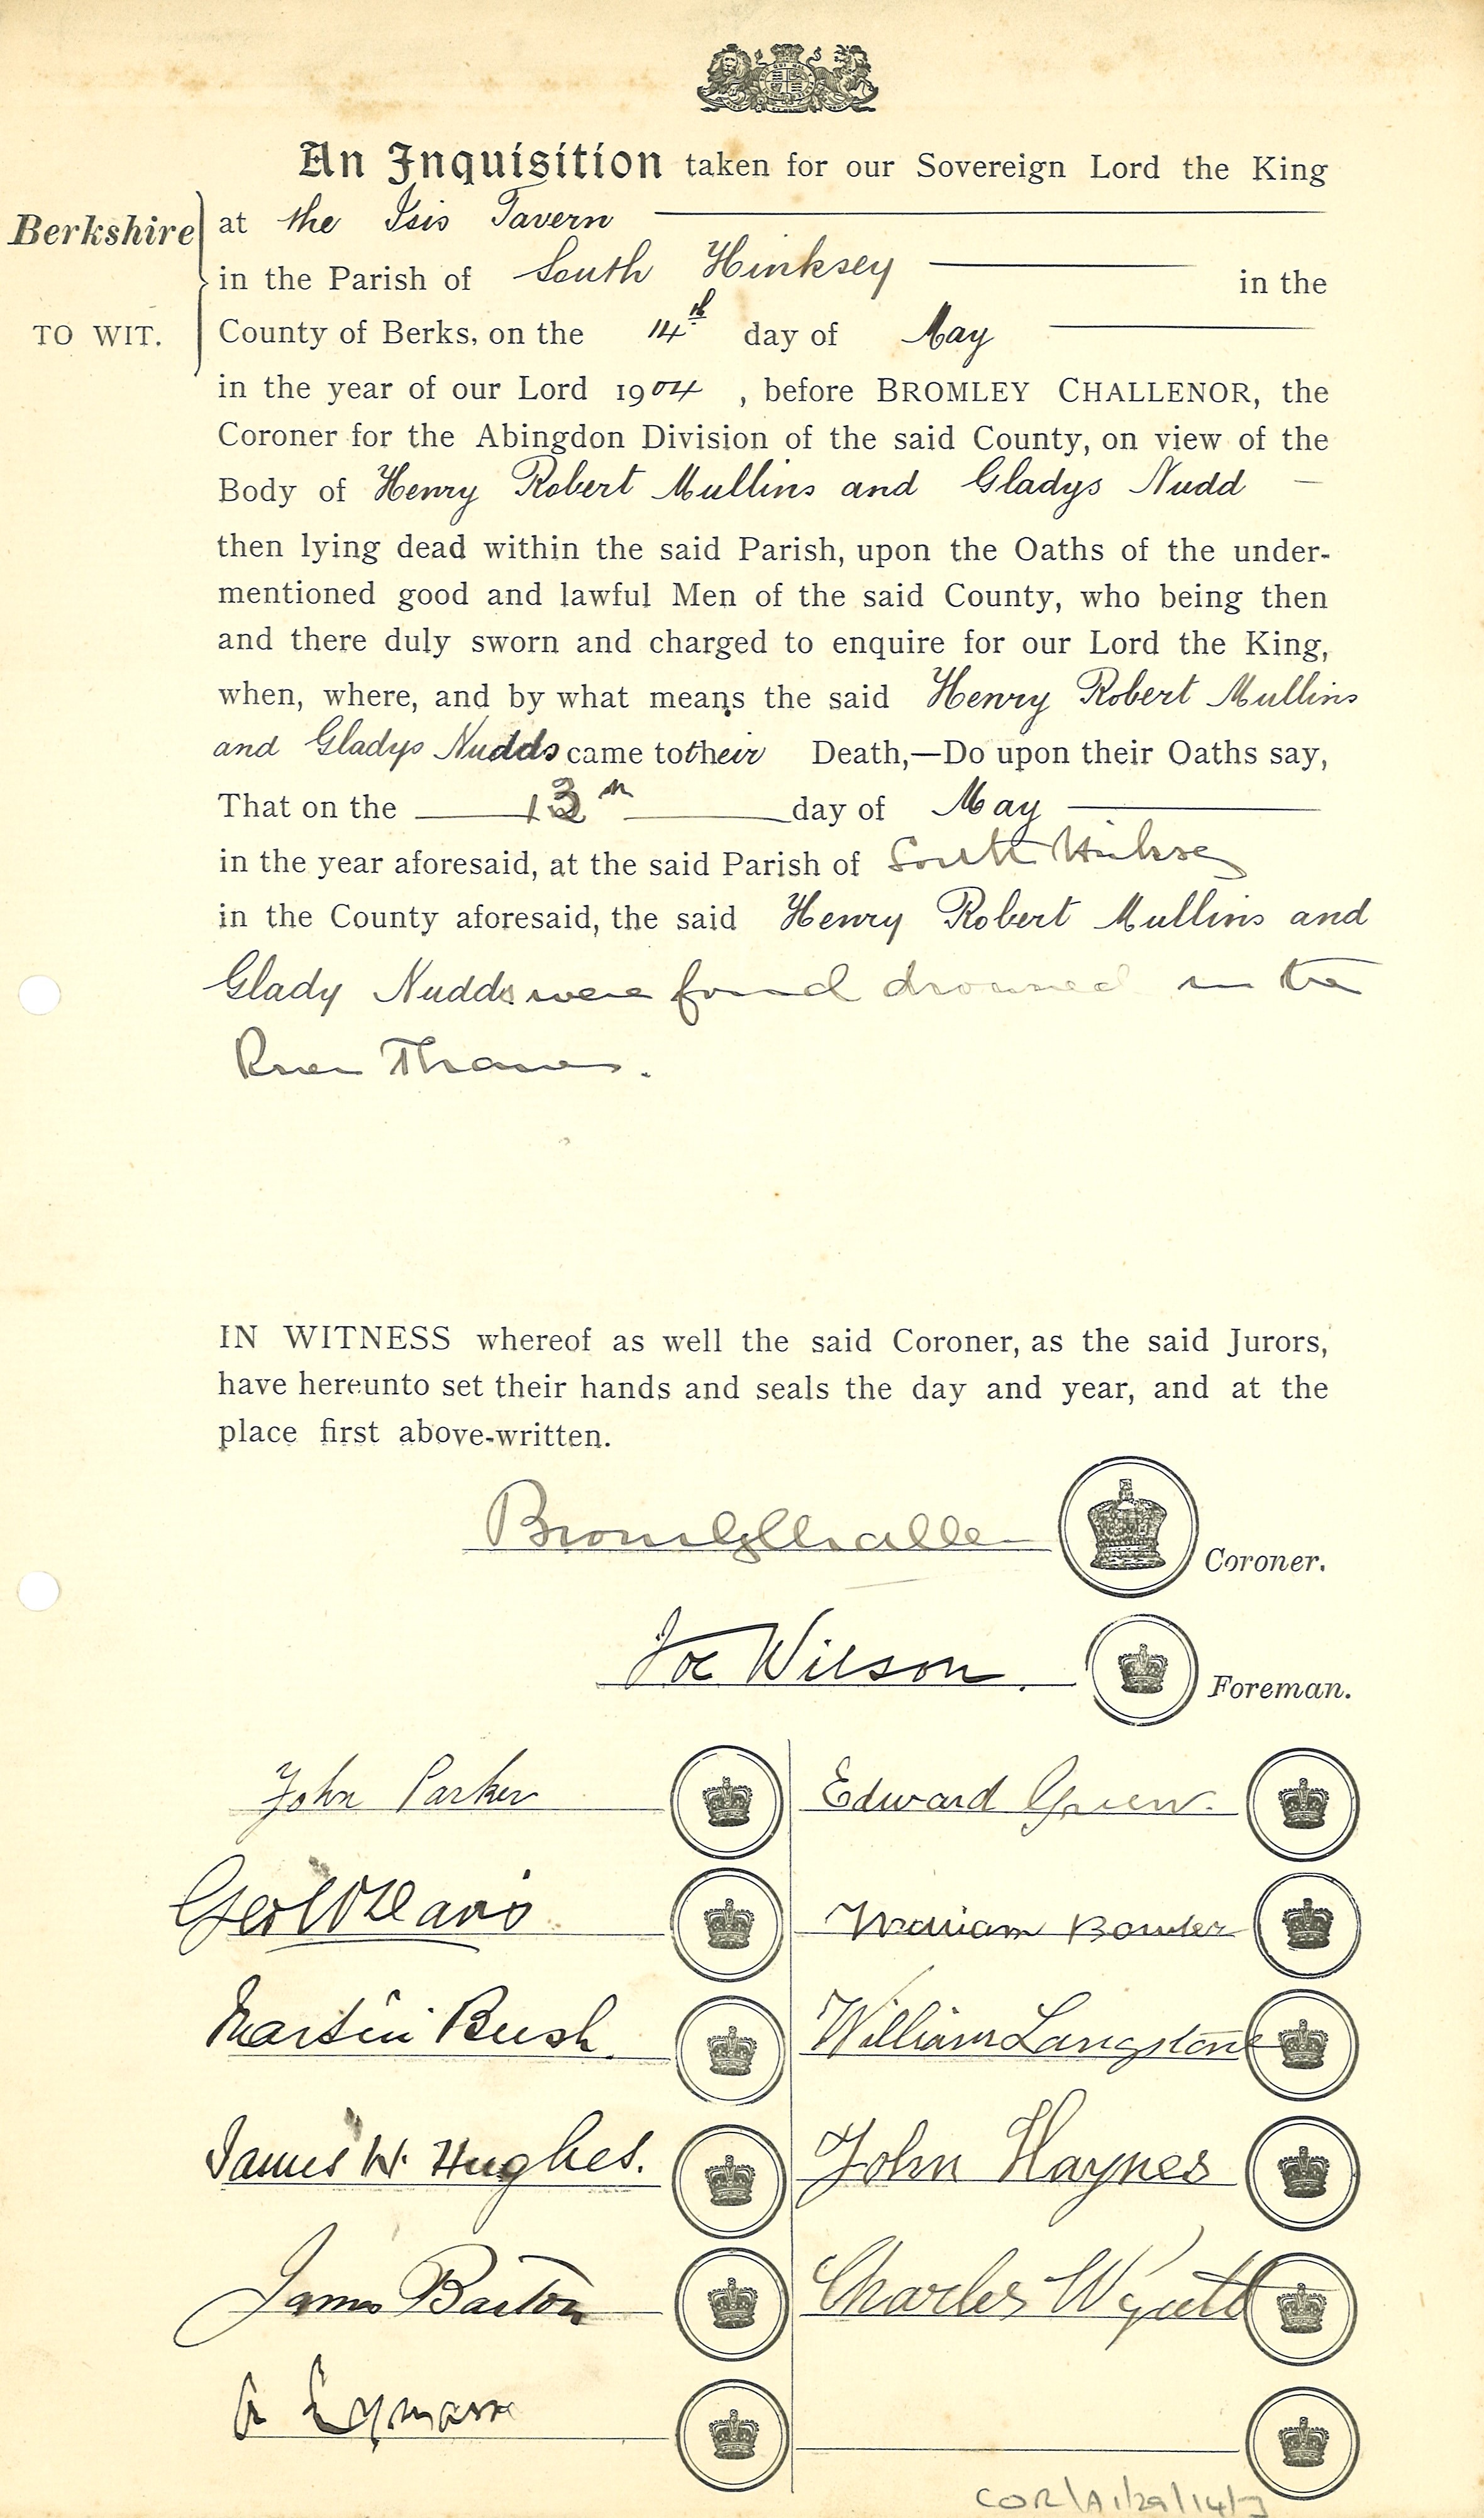 An Inquisition taken for our Sovereign Lord the King
Berkshire at the Isis Tavern
in the Parish of South Hinksey in the
TO WIT. County of Berks, on the 14th day of May
in the year of our Lord 1904, before BROMLEY CHALLENOR, the
Coroner for the Abingdon Division of the said County, on view of the
Body of Henry Robert Mullins and Gladys Nudd
then lying dead within the said Parish, upon the Oaths of the under-
mentioned good and lawful Men of the said County, who being then
and there duly sworn and charged to enquire for our Lord the King,
when, where, and by what means the said Henry Robert Mullins
and Gladys Nudds came to their Death,—Do upon their Oaths say,
That on the 13th day of May
in the year aforesaid, at the said Parish of South Hinksey
in the County aforesaid, the said Henry Robert Mullins and
Glady Nudds were found drowned in the
River Thames.
IN WITNESS whereof as well the said Coroner, as the said Jurors,
have hereunto set their hands and seals the day and year, and at the
place first above-written.
Coroner.
Joe Wilson. Foreman.
John Parker Edward
Geo William
Martin Bush. William Langstone
James W. Hughes. John Haynes
James Barton Charles Wyatt
COR/A1/29/14/7